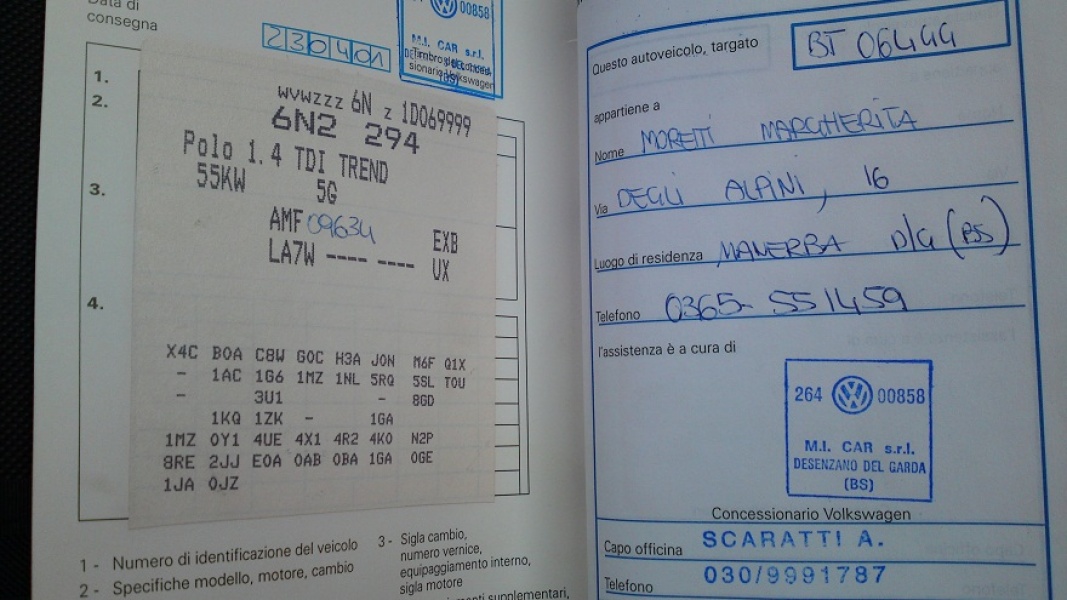 Data di
consegna
230401
264 00858
M.I. CAR s.r.l.
(BS)
1.
2.
3.
4.
WVWZZZ 6N Z 1D069999
6N2 294
Polo 1.4 TDI TREND
55KW 5G
AMF 09634 EXB
LA7W ---- ---- UX
X4C B0A C8W G0C H3A J0N M6F Q1X
- 1AC 1G6 1MZ 1NL 5RQ 5SL T0U
- 3U1 - 8GD
1KQ 1ZK - 1GA
1MZ 0Y1 4UE 4X1 4R2 4K0 N2P
8RE 2JJ E0A 0AB 0BA 1GA 0GE
1JA 0JZ
1 - Numero di identificazione del veicolo
2 - Specifiche modello, motore, cambio
3 - Sigla cambio,
numero vernice,
equipaggiamento interno,
sigla motore
supplementari,
Questo autoveicolo, targato BT 064GG
appartiene a
Nome MORETTI MARGHERITA
Via DEGLI ALPINI, 16
Luogo di residenza MANERBA D/G (BS)
Telefono 0365-551459
l'assistenza è a cura di
264 00858
M.I. CAR s.r.l.
DESENZANO DEL GARDA
(BS)
Concessionario Volkswagen
Capo officina SCARATTI A.
Telefono 030/9991787